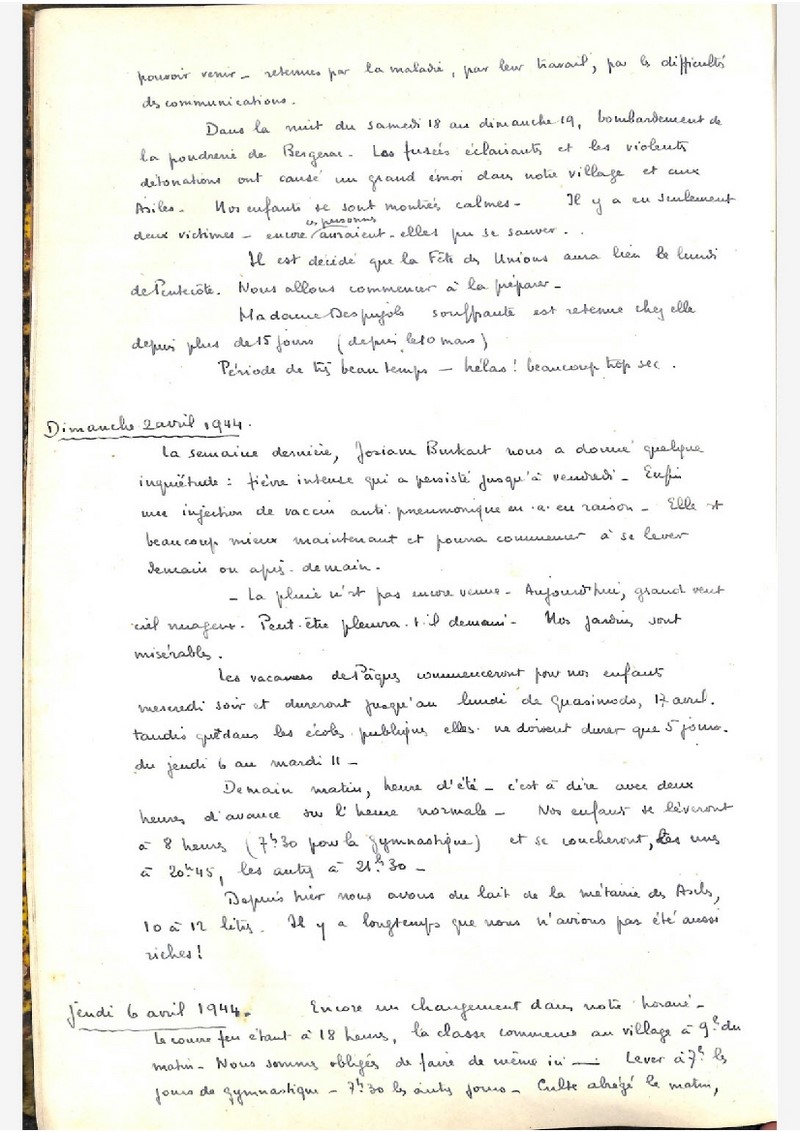 pouvoir venir - retenues par la maladie, par leur travail, par les difficultés
des communications.
Dans la nuit du samedi 18 au dimanche 19, bombardement de
la poudrerie de Bergerac. Les fusées éclairants et les violents
détonations ont causé un grand émoi dans notre village et aux
Asiles. Nos enfants se sont montrés calmes - Il y a eu seulement
ces personnes
deux victimes - encore auraient-elles pu se sauver . .
Il est décidé que la Fête des Unions aura lieu le lundi
de Pentecôte. Nous allons commencer à la préparer -
Madame Despujols souffrante est retenue chez elle
depuis plus de 15 jours (depuis le 10 mars)
Période de très beau temps - hélas ! beaucoup trop sec .
Dimanche 2 avril 1944.
La semaine dernière, Josiane Burkart nous a donné quelque
inquiétude : fièvre intense qui a persisté jusqu'à vendredi - Enfin
une injection de vaccin anti-pneumonique en a eu raison - Elle est
beaucoup mieux maintenant et pourra commencer à se lever
demain ou après-demain.
- La pluie n'est pas encore venue - Aujourd'hui, grand vent
ciel nuageux. Peut-être pleuvra-t-il demain - Nos jardins sont
misérables.
Les vacances de Pâques commenceront pour nos enfants
mercredi soir et dureront jusqu'au lundi de Quasimodo, 17 avril.
tandis que dans les écoles publiques elles ne doivent durer que 5 jours.
du jeudi 6 au mardi 11 -
Demain matin, heure d'été - c'est à dire avec deux
heures d'avance sur l'heure normale - Nos enfants se lèveront
à 8 heures (7h30 pour la gymnastique) et se coucheront, les unes
à 20h45, les autres à 21h30 -
Depuis hier nous avons du lait de la métairie des Asiles,
10 à 12 litres. Il y a longtemps que nous n'avions pas été aussi
riches !
Jeudi 6 avril 1944. Encore un changement dans notre horaire -
Le couvre feu étant à 18 heures, la classe commence au village à 9h du
matin - Nous sommes obligés de faire de même ici — Lever à 7h les
jours de gymnastique - 7h30 les autres jours - Culte abrégé le matin,